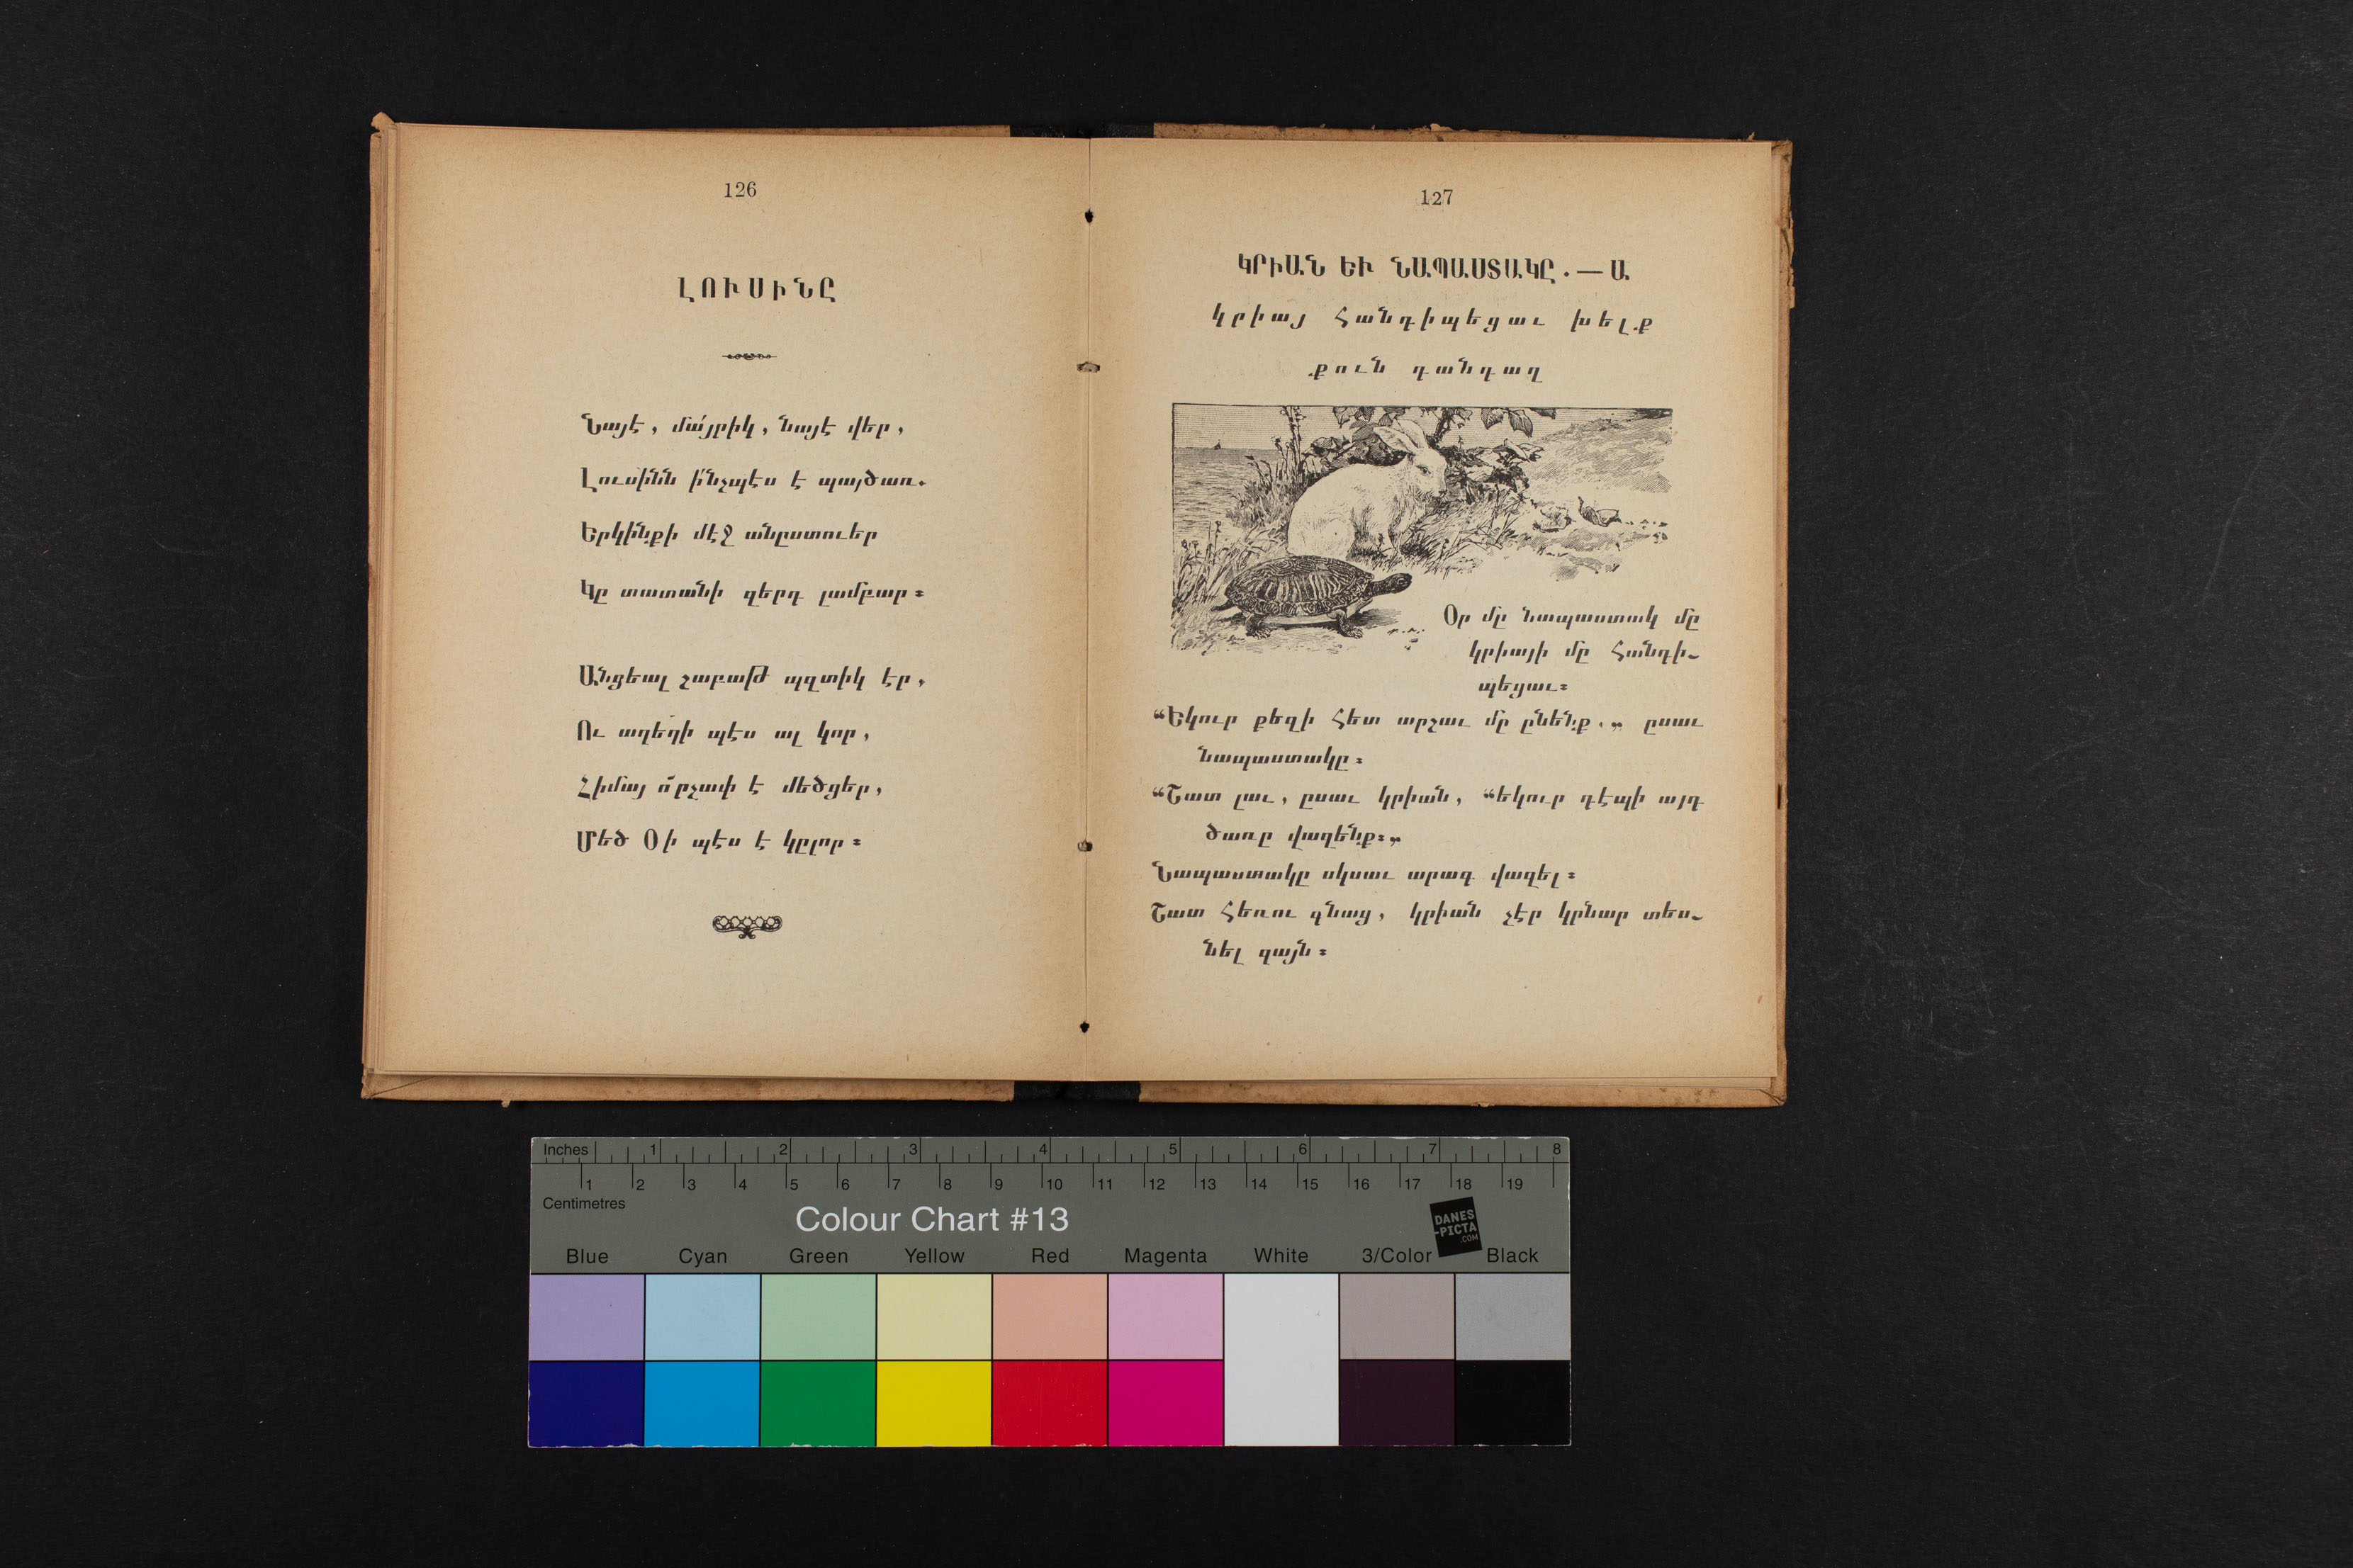 126
ԼՈՒՍԻՆԸ
Նայէ, մա՛յրիկ, նայէ վեր,
Լուսինն ի՜նչպէս է պայծառ.
Երկինքի մէջ անըստուեր
Կը տատանի զերդ լամբար։
Անցեալ շաբաթ պզտիկ էր,
Ու աղեղի պէս ալ կոր,
Հիմայ ո՜րչափ է մեծցեր,
Մեծ Օի պէս է կըլոր։
127
ԿՐԻԱՆ ԵՒ ՆԱՊԱՍՏԱԿԸ.—Ա
կրիայ հանդիպեցաւ խելք
քուն դանդաղ
Օր մը նապաստակ մը
կրիայի մը հանդի-
պեցաւ։
“Եկուր քեզի հետ արշաւ մը ընենք.„ ըսաւ
նապաստակը։
“Շատ լաւ, ըսաւ կրիան, “եկուր դէպի այդ
ծառը վազենք։„
Նապաստակը սկսաւ արագ վազել։
Շատ հեռու գնաց, կրիան չէր կրնար տես-
նել զայն։
Inches 1 2 3 4 5 6 7 8
1 2 3 4 5 6 7 8 9 10 11 12 13 14 15 16 17 18 19
Centimetres
Colour Chart #13
DANES
-PICTA
.COM
Blue Cyan Green Yellow Red Magenta White 3/Color Black